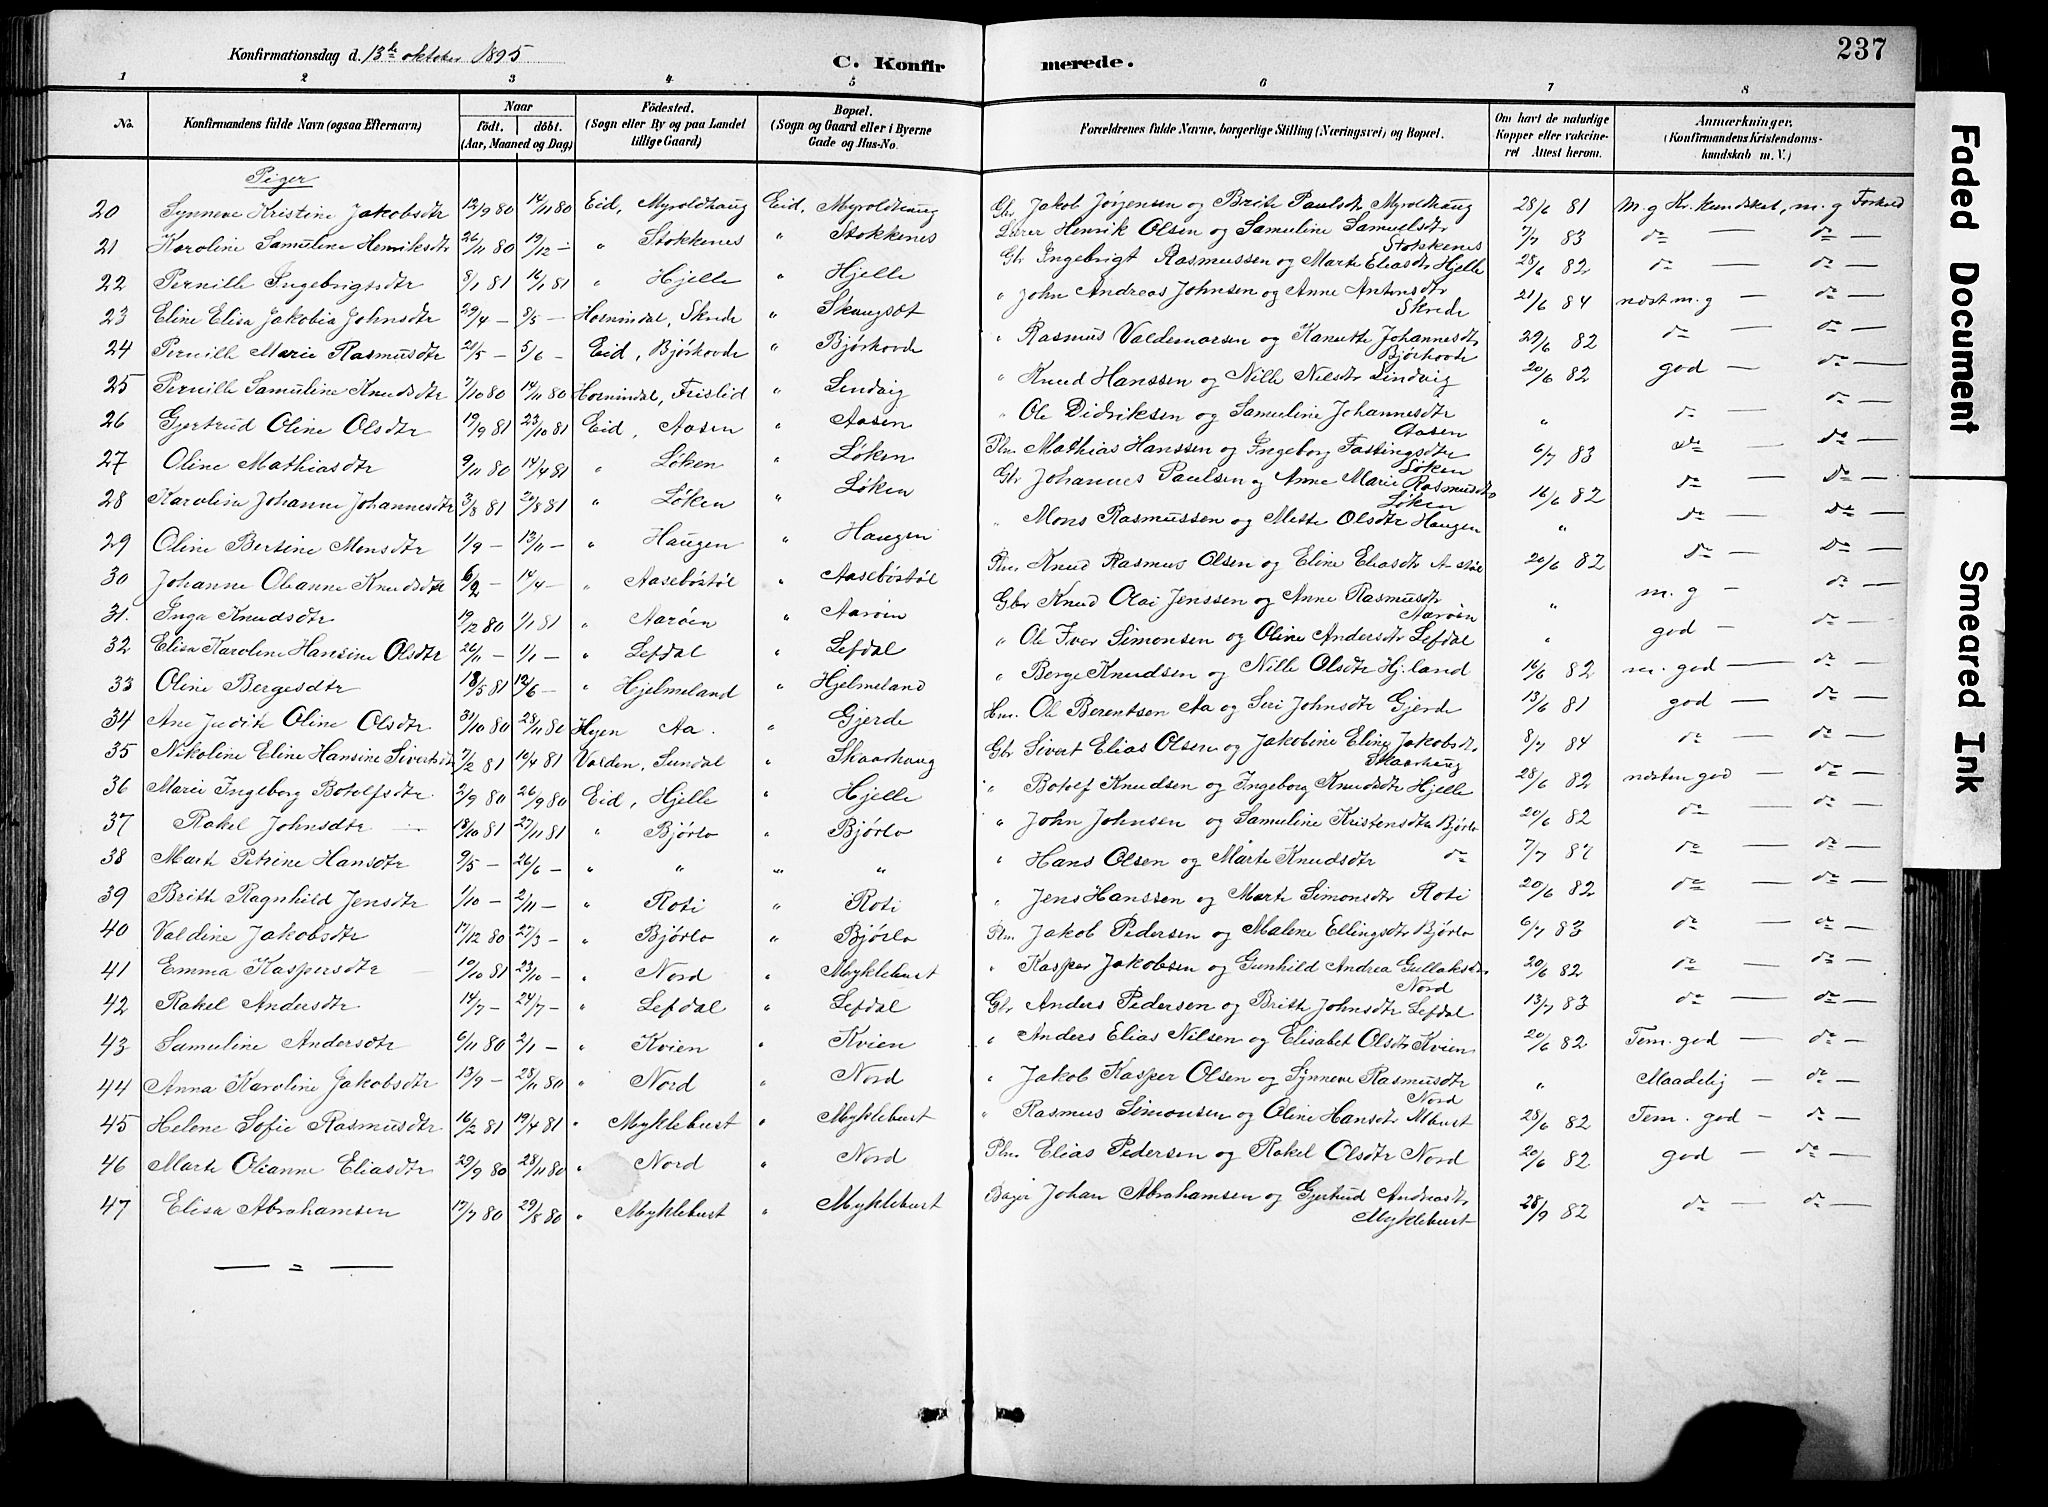 237
Konfirmationsdag d. 13de oktober 1895
C. Konfirmerede.
1 2 3 4 5 6 7 8
No. Konfirmandens fulde Navn (ogsaa Efternavn) Naar födt. döbt. (Aar, Maaned og Dag) Födested. (Sogn eller By og paa Landet tillige Gaard) Bopæl. (Sogn og Gaard eller i Byerne Gade og Hus-No. Forældrenes fulde Navne, borgerlige Stilling (Næringsvei) og Bopæl. Om havt de naturlige Kopper eller vakcineret Attest herom. Anmærkninger. (Konfirmandens Kristendomskundskab m. V.)
Piger
20 Synneve Kristine Jakobsdtr 12/9 80 14/11 80 Eid, Myroldhaug Eid, Myroldhaug Gbr Jakob Jørgensen og Brite Paulsdtr Myroldhaug 28/6 81 m.g Kr. kundskab, m.g Forhold
21 Karoline Samuline Henriksdtr 26/11 80 19/12 – " Stokkenes " Stokkenes Lærer Henrik Olsen og Samuline Samuelsdtr Stokkenes 7/7 83 do – do –
22 Pernille Ingebrigtsdtr 8/1 81 16/1 81 " Hjelle " Hjelle Gbr Ingebrigt Rasmussen og Marte Eliasdtr Hjelle 28/6 82 do – do –
23 Eline Elisa Jakobia Johnsdtr 29/4 – 8/5 – Hornindal, Skrede " Skaugset " John Andreas Johnsen og Anne Antonsdtr Skrede 21/6 84 næst m.g – do –
24 Pernille Marie Rasmusdtr 21/5 – 5/6 – Eid, Bjørhovde " Bjørhovde " Rasmus Valdemarsen og Kanutte Johannesdtr Bjørhovde 29/6 82 do – do –
25 Pernille Samuline Knudsdtr 7/10 80 14/11 80 Hornindal, Frislid " Lindvig " Knud Hanssen og Nille Nilsdtr Lindvig 20/6 82 god – do –
26 Gjertrud Oline Olsdtr 19/9 81 23/10 81 Eid, Aasen " Aasen " Ole Didriksen og Samuline Johannesdtr Aasen " do – do –
27 Oline Mathiasdtr 9/11 80 14/4 81 " Løken " Løken Plm. Mathias Hanssen og Ingeborg Fastingsdtr Løken 6/7 83 do – do –
28 Karoline Johanne Johannesdtr 3/8 81 28/8 81 " Løken " Løken Gbr Johannes Paulsen og Anne Marie Rasmusdtr Løken 16/6 82 do – do –
29 Oline Bertine Monsdtr 1/9 – 13/11 – " Haugen " Haugen " Mons Rasmussen og Mette Olsdtr Haugen " do – do –
30 Johanne Olianne Knudsdtr 6/2 – 14/4 – " Aasebøstøl " Aasebøstøl Plm. Knud Rasmus Olsen og Eline Eliasdtr A-støl 20/6 82 do – do –
31. Inga Knudsdtr 19/12 80 1/1 81 " Aarøen " Aarøen Gbr Knud Olai Jenssen og Anne Rasmusdtr Aarøen " m.g – do –
32 Elisa Karoline Hansine Olsdtr 26/11 – 1/1 – " Lefdal " Lefdal " Ole Iver Simonsen og Oline Andersdtr Lefdal " god – do –
33 Oline Bergesdtr 18/5 81 12/6 – " Hjelmeland " Hjelmeland " Berge Knudsen og Nille Olsdtr Hj.land 16/6 82 m. god – do –
34 Ane Judik Oline Olsdtr 31/10 80 28/11 80 Hyen Aa. " Gjerde Hm. Ole Berentsen Aa og Seri Johnsdtr Gjerde 13/6 81 god – do –
35 Nikoline Eline Hansine Sivertsdtr 7/2 81 10/4 81 Volden, Sundal " Skaarhaug Gbr Sivert Elias Olsen og Jakobine Eline Jakobsdtr Skaarhaug 8/7 84 do – do –
36 Marie Ingeborg Botolfsdtr. 2/9 80 26/9 80 Eid, Hjelle " Hjelle " Botolf Knudsen og Ingeborg Knudsdtr Hjelle 28/6 82 næsten god – do –
37 Rakel Johnsdtr 18/10 81 27/11 81 " Bjørlo " Bjørlo " John Johnsen og Samuline Kristensdtr Bjørlo 20/6 82 do – do –
38 Marte Petrine Hansdtr 9/5 – 26/6 – " " " " " Hans Olsen og Marte Knudsdtr do 7/7 82 do – do –
39 Britte Ragnhild Jensdtr 1/10 – 2/11 – " Roti " Roti " Jens Hanssen og Marte Simonsdtr Roti 20/6 82 do – do –
40 Valdine Jakobsdtr 17/12 80 27/3 – " Bjørlo " Bjørlo Plm. Jakob Pedersen og Malene Ellingsdtr Bjørlo 6/7 83 do – do –
41 Emma Kaspersdtr 10/10 81 23/10 – " Nord " Myklebust " Kasper Jakobsen og Gunhild Andrea Gullaksdtr Nord 20/6 82 do – do –
42 Rakel Andersdtr 14/7 – 24/7 – " Lefdal " Lefdal Gbr Anders Pedersen og Britt Johnsdtr Lefdal 13/7 83 do – do –
43 Samuline Andersdtr 6/11 80 2/1 – " Kvien " Kvien " Anders Elias Nilsen og Elisabet Olsdtr Kvien 20/6 82 Tem. god – do –
44 Anna Karoline Jakobsdtr 13/9 – 28/11 80 " Nord " Nord " Jakob Kasper Olsen og Synneve Rasmusdtr Nord " Maadelig – do –
45 Helene Sofie Rasmusdtr 16/2 81 19/4 81 " Myklebust " Myklebust " Rasmus Simonsen og Oline Hansdtr Mbust 28/6 82 Tem. god – do –
46 Marte Olianne Eliasdtr 29/9 80 28/11 80 " Nord " Nord Plm. Elias Pedersen og Rakel Olsdtr Nord 20/6 82 god – do –
47 Elisa Abrahamsen 17/7 80 29/8 80 " Myklebust " Myklebust Bager Johan Abrahamsen og Gjertrud Andreasdtr Myklebust 28/9 82 do – do –
Faded Document
Smeared Ink